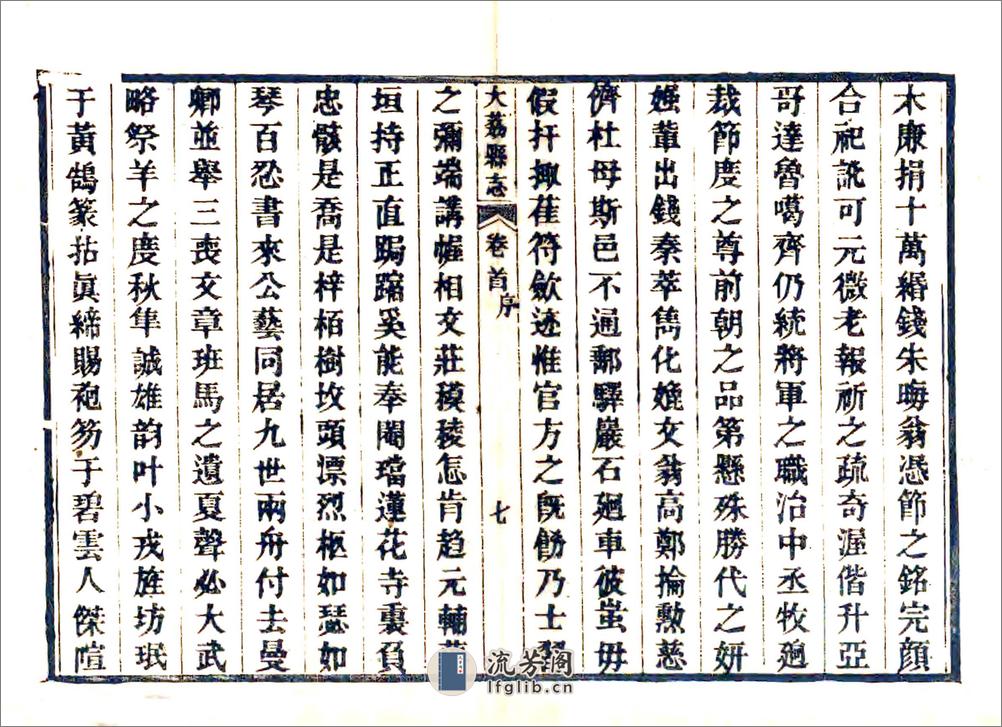 木康捐十萬緡錢朱晦翁憑節之銘完顏
合祀訛可元微老報祈之疏奇渥偕升亞
哥達魯噶齊仍統將軍之職治中丞牧廻
裁節度之尊前朝之品第懸殊勝代之妍
媸輩出錢秦萃雋化娩文翁高鄭掄勲慈
儕杜母斯邑不通郵驛巖石廻車彼蚩毋
假扞掫萑苻斂迹惟官方之旣飭乃士習
大荔縣志 卷首 序 七
之彌端講幄相文莊模稜怎肯趋元輔薇
垣持正直跼蹐奚能奉閹璫蓮花寺裏負
忠骸是喬是梓栢樹坟頭慓烈柩如瑟如
琴百忍書來公藝同居九世兩舟付去曼
卿並舉三喪文章班馬之遺夏聲必大武
略祭羊之度秋隼誠雄韵叶小戎旌坊珉
于黃鵠篆拈眞締賜袍笏于碧雲人傑喧
流芳阁
lfglib.cn